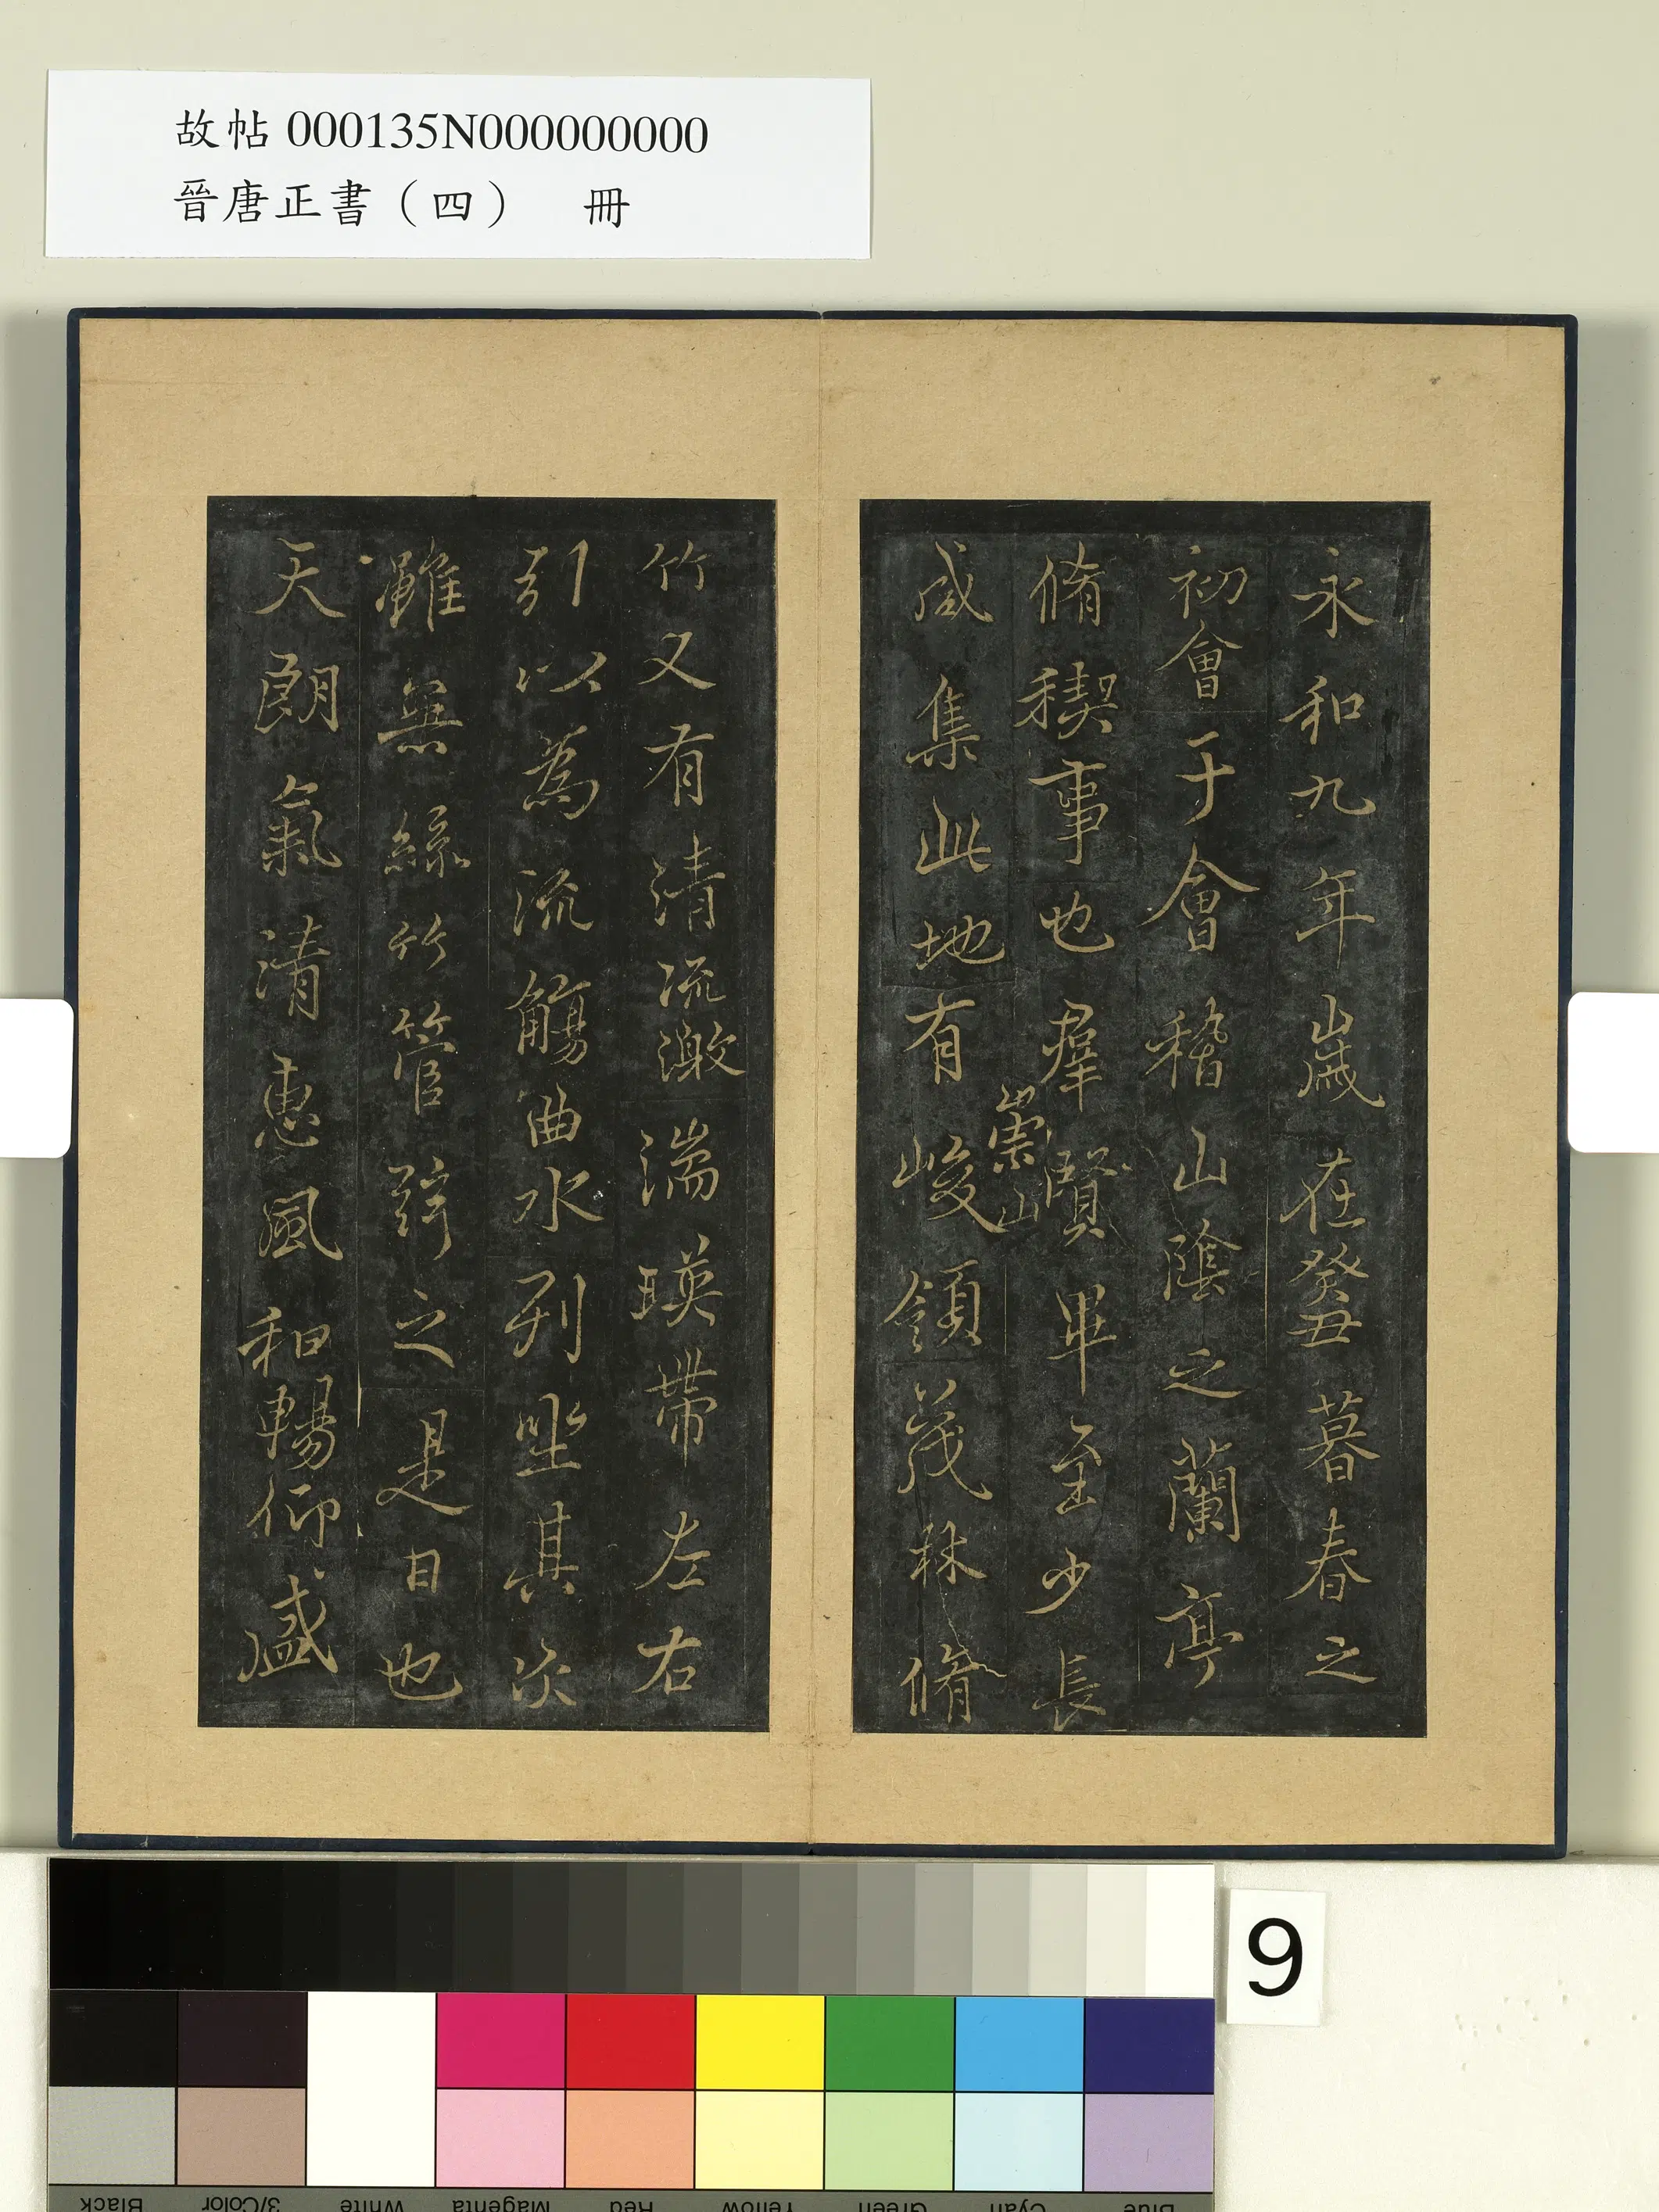 故帖 000135N000000000
晉唐正書（四） 冊
永和九年歲在癸丑暮春之
初會于會稽山陰之蘭亭
脩稧事也羣賢畢至少長
咸集此地有
崇山
峻領茂林脩
竹又有清流激湍暎帶左右
引以為流觴曲水列坐其次
雖無絲竹管弦之
是日也
天朗氣清惠風和暢仰
9
Black
3/Color
White
Magenta
Red
Yellow
Green
Cyan
Blue